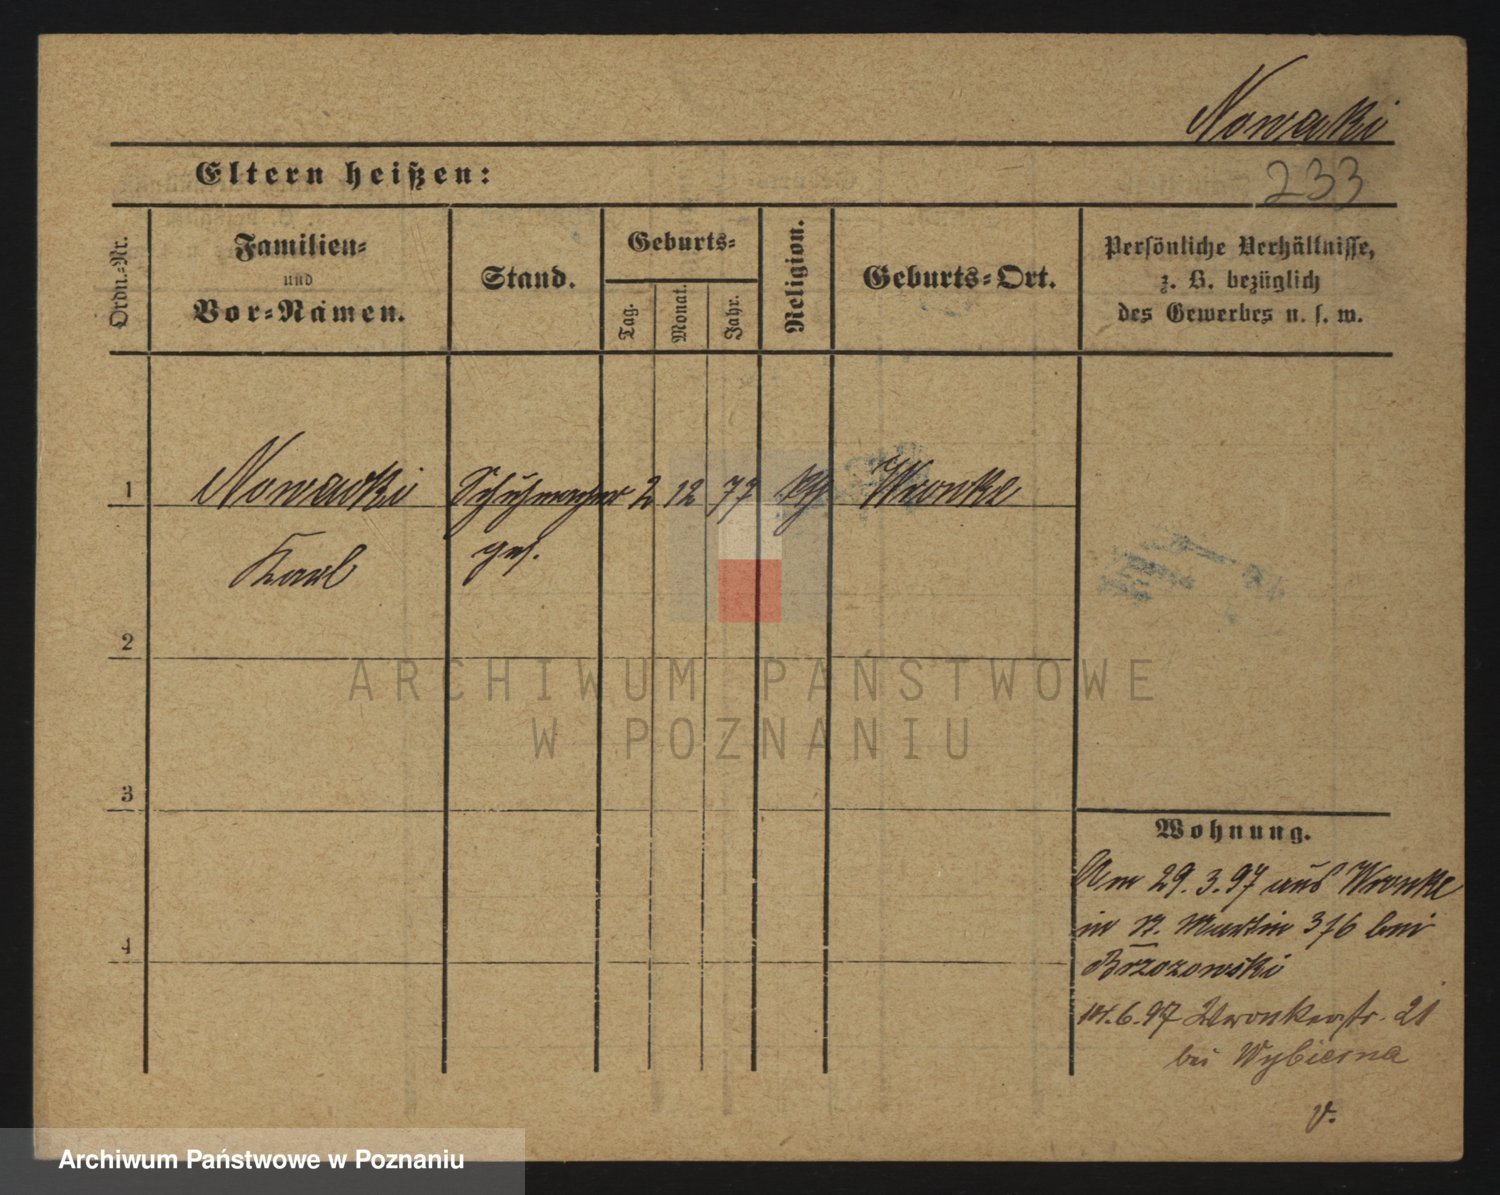 Nowacki
Eltern heißen:
233
Ordn.-Nr.
Familien-
und
Vor-Namen.
Stand.
Geburts-
Tag.
Monat.
Jahr.
Religion.
Geburts-Ort.
Persönliche Verhältnisse,
z. B. bezüglich
des Gewerbes u. s. w.
1
Nowacki
Schuhmacher
2
12
77
kth
Wronke
Karl
ges.
2
ARCHIWUM PAŃSTWOWE
W POZNANIU
3
Wohnung.
Am 29.3.97 aus Wronke
in St. Martin 376 bei
Brzozowski
14.6.97 Wronkerstr. 21
bei Wybierna
v.
4
Archiwum Państwowe w Poznaniu